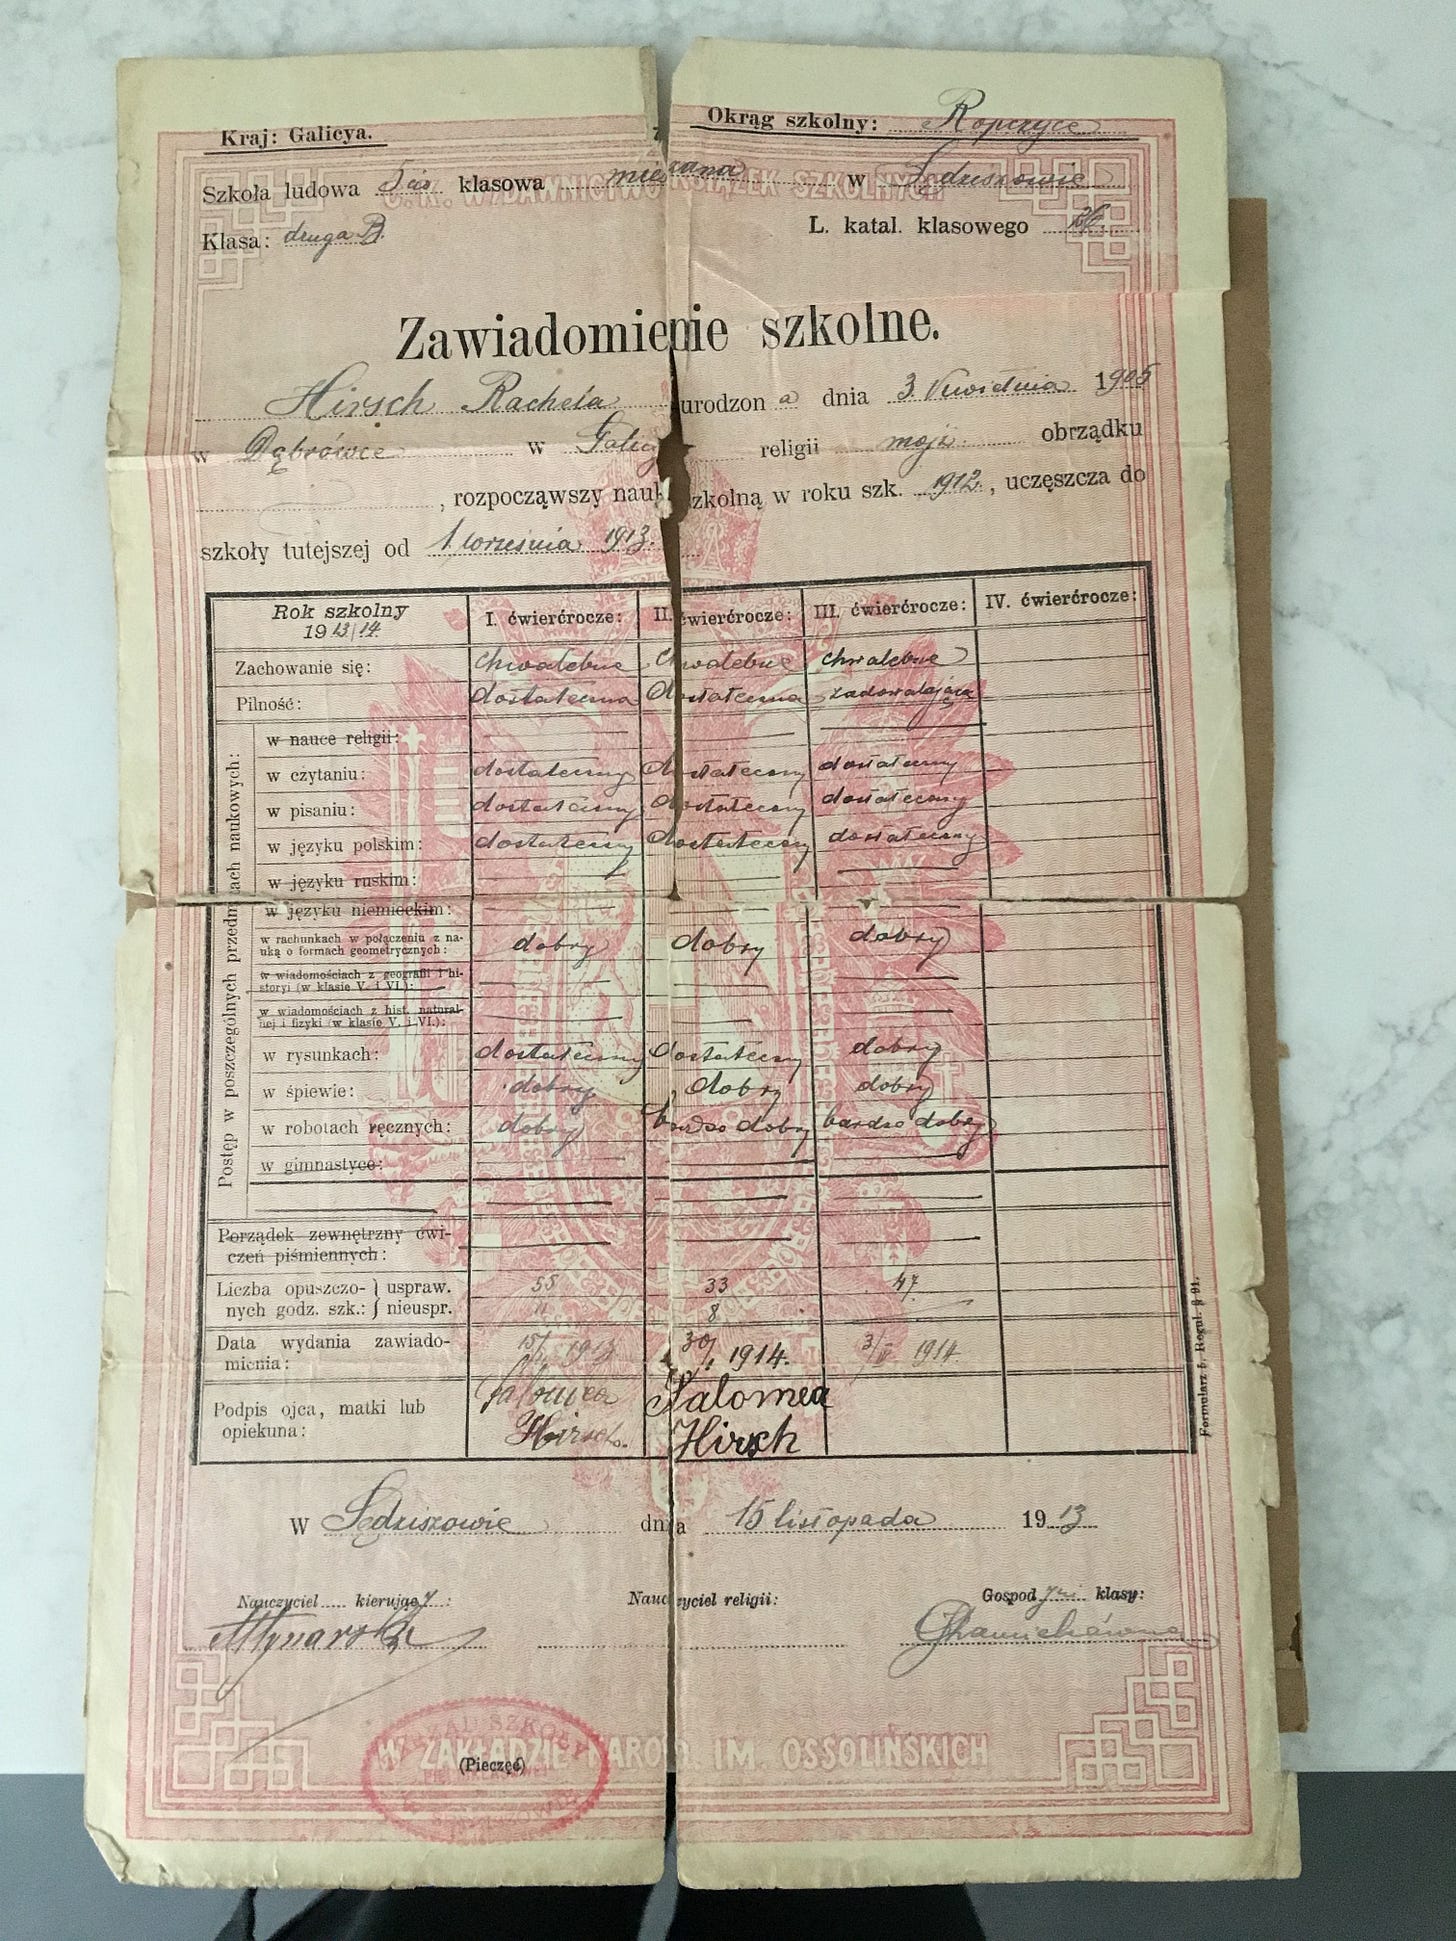 Kraj: Galicya.
Okrąg szkolny: Ropczyce
Szkoła ludowa 5cio klasowa mieszana w Sędziszowie
C. K. WYDAWNICTWO KSIĄŻEK SZKOLNYCH
Klasa: druga B.
L. katal. klasowego
Zawiadomienie szkolne.
Hirsch Rachela urodzona dnia 3 Kwietnia 1905
w Dąbrówce w Galicyi religii mojż. obrządku
, rozpocząwszy naukę szkolną w roku szk. 1912, uczęszcza do
szkoły tutejszej od 1 września 1913.
Rok szkolny 1913/14 I. ćwierćrocze: II. ćwierćrocze: III. ćwierćrocze: IV. ćwierćrocze:
Zachowanie się: chwalebne chwalebne chwalebne
Pilność: dostateczna dostateczna zadowalająca
Postęp w poszczególnych przedmiotach naukowych:
w nauce religii:
w czytaniu: dostateczny dostateczny dostateczny
w pisaniu: dostateczny dostateczny dostateczny
w języku polskim: dostateczny dostateczny dostateczny
w języku ruskim:
w języku niemieckim:
w rachunkach w połączeniu z na-
uką o formach geometrycznych: dobry dobry dobry
w wiadomościach z geografii i hi-
storyi (w klasie V. i VI.):
w wiadomościach z hist. natural-
nej i fizyki (w klasie V. i VI.):
w rysunkach: dostateczny dostateczny dobry
w śpiewie: dobry dobry dobry
w robotach ręcznych: dobry bardzo dobry bardzo dobry
w gimnastyce:
Porządek zewnętrzny ćwi-
czeń piśmiennych:
Liczba opuszczo- uspraw. 55 33 47
nych godz. szk.: nieuspr. 11 8
Data wydania zawiado-
mienia: 1913 30/1 1914. 1914
Podpis ojca, matki lub
opiekuna:
Salomea Salomea
Hirsch. Hirsch
Formularz b. Regul. § 91.
W Sędziszowie dnia 15 listopada 1913
Nauczyciel kierujący: Nauczyciel religii: Gospodyni klasy:
Młynarski
ZARZĄD SZKOŁY
(Pieczęć)
W ZAKŁADZIE NAROD. IM. OSSOLIŃSKICH